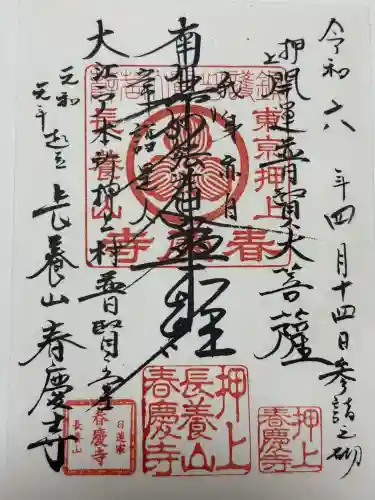 令和六年四月十四日参詣之砌
押上
開運普賢大菩薩
南無妙法蓮華経
大江戸本所押上村普賢堂
元和元年起立
長養山春慶寺
東京押上
長養山
春慶寺
押上
春慶寺
押上
長養山
春慶寺
日蓮宗
春慶寺
長養山